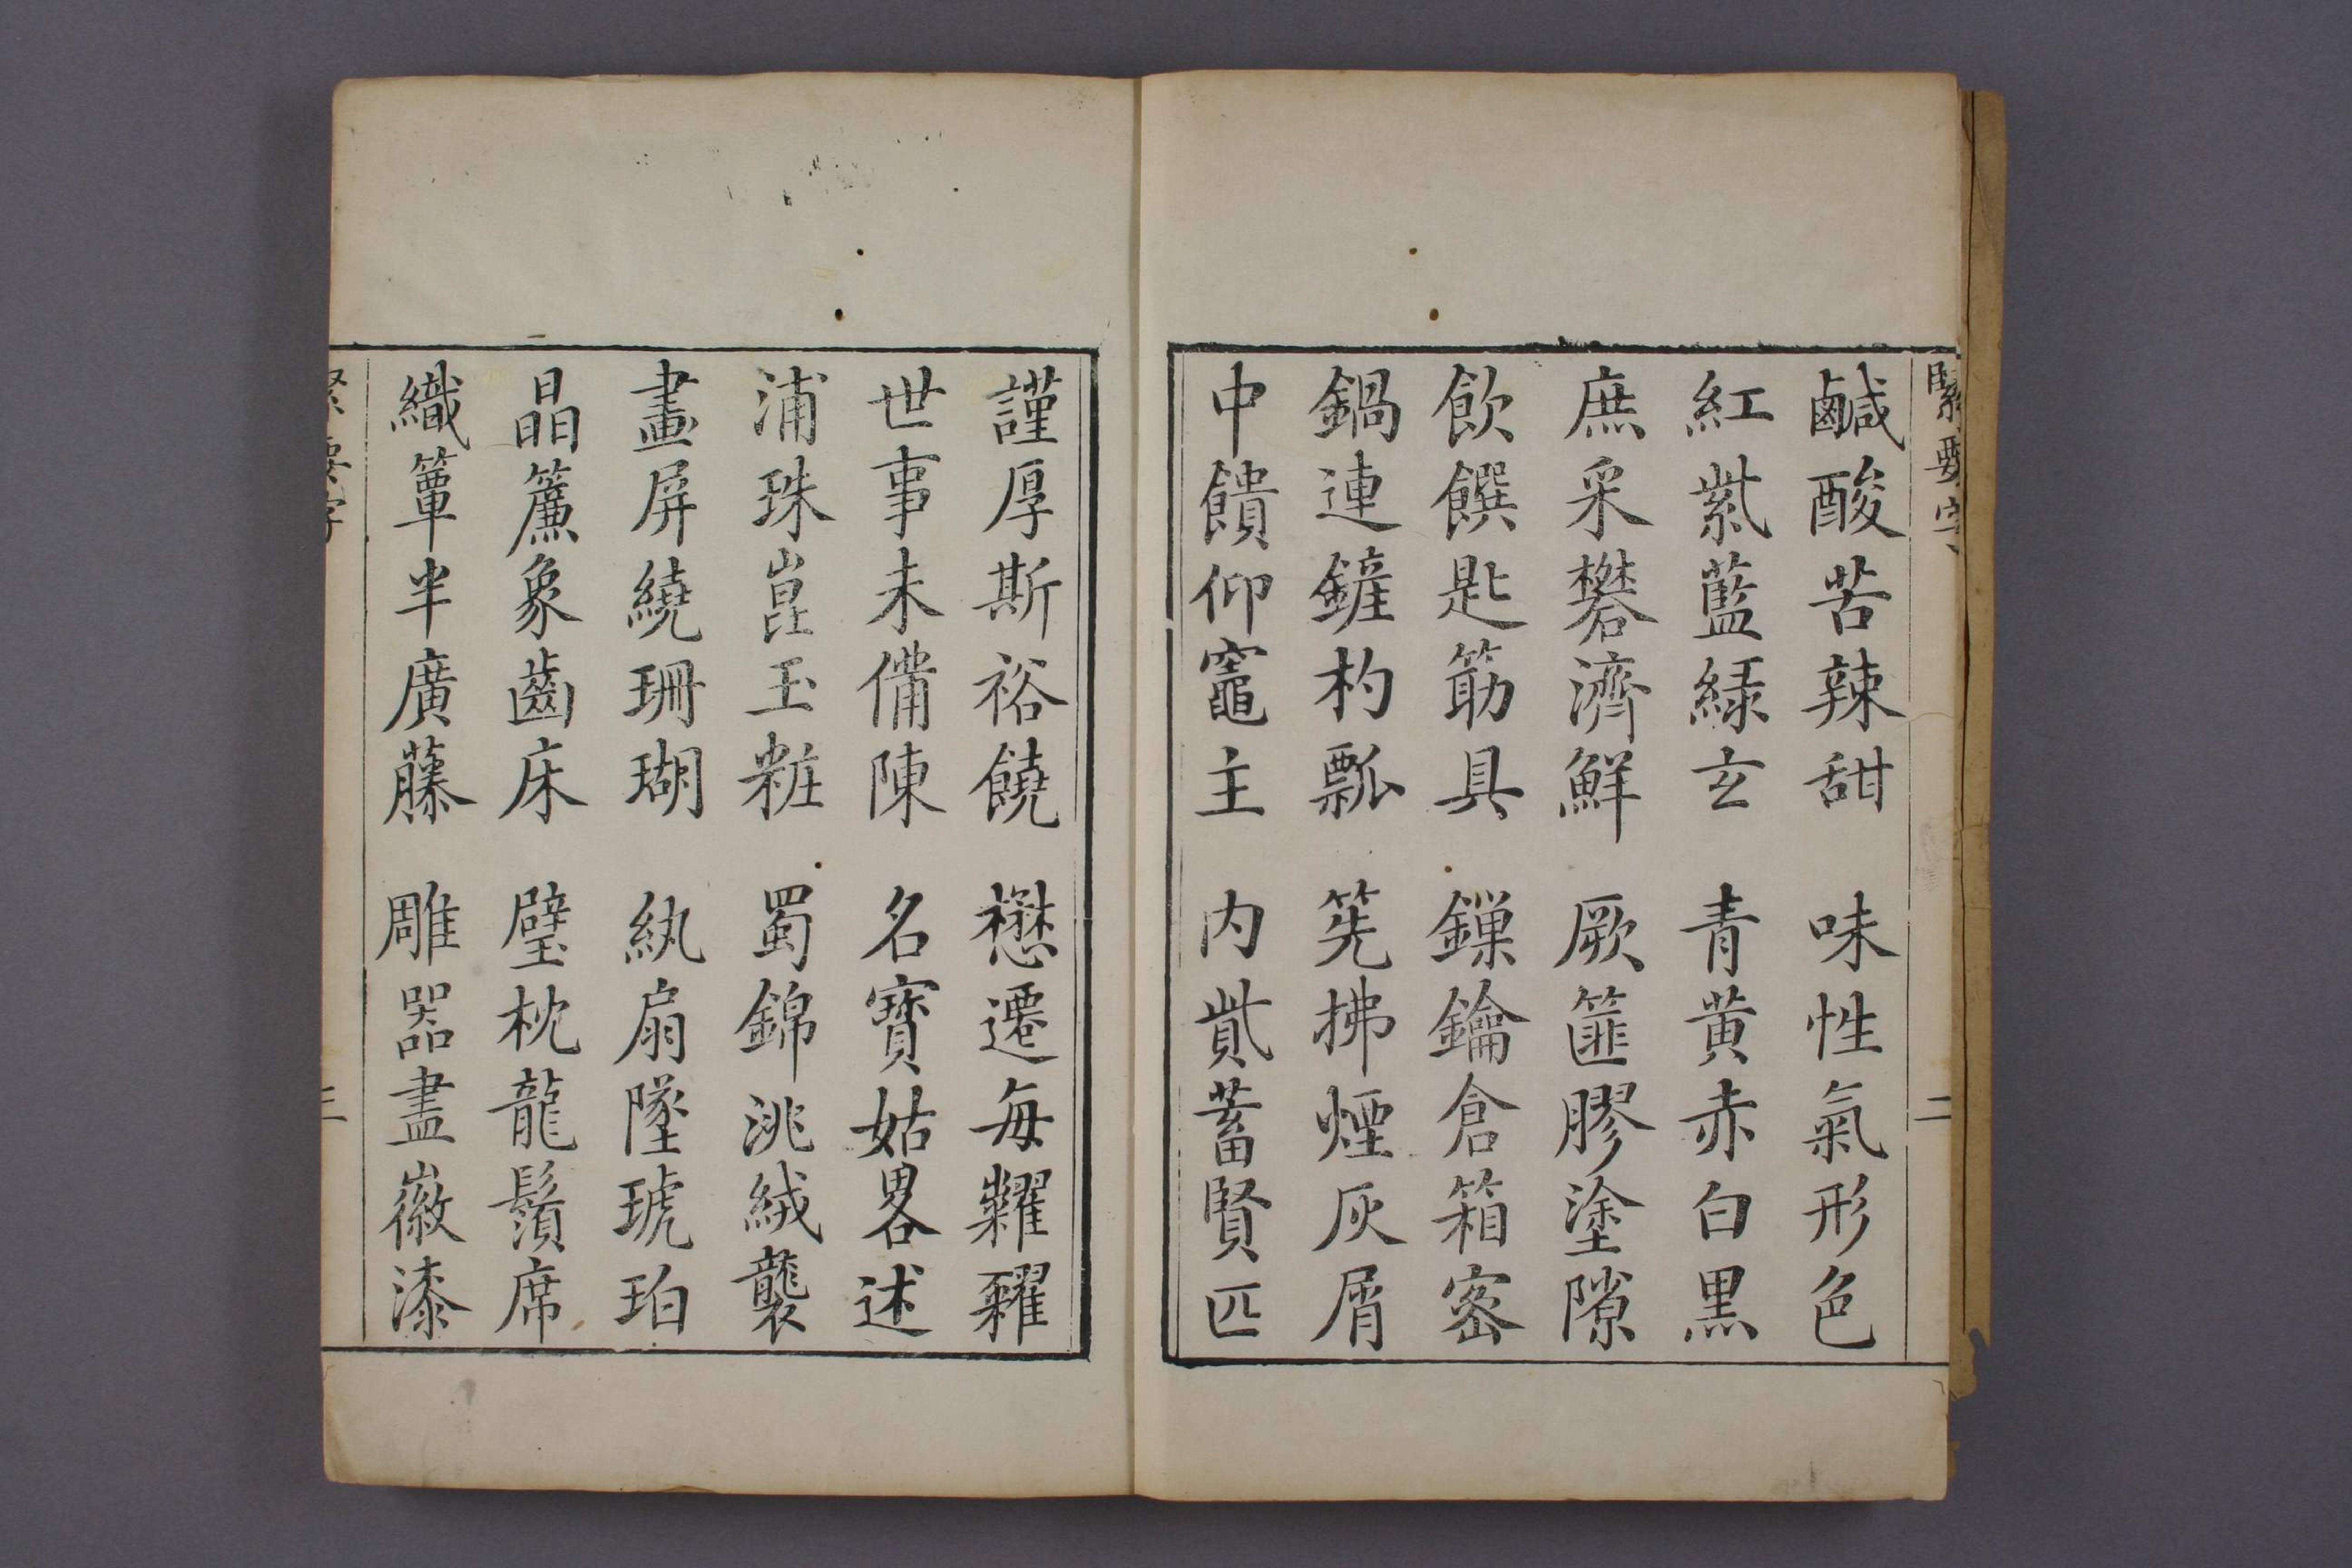 緊要字
二
鹹酸苦辣甜　味性氣形色
紅紫藍緑玄　青黄赤白黒
庶采礬濟鮮　厥篚膠塗隙
飲饌匙筯具　鏁鑰倉箱密
鍋連鏟杓瓢　筅拂煙灰屑
中饋仰竈主　内貲蓄賢匹
謹厚斯裕饒　懋遷毎糶糴
世事未備陳　名寳姑畧述
浦珠崑玉粧　蜀錦洮絨襲
畫屏繞珊瑚　紈扇墜琥珀
晶簾象齒床　璧枕龍鬚席
織簟半廣藤　雕器盡徽漆
緊要字
三